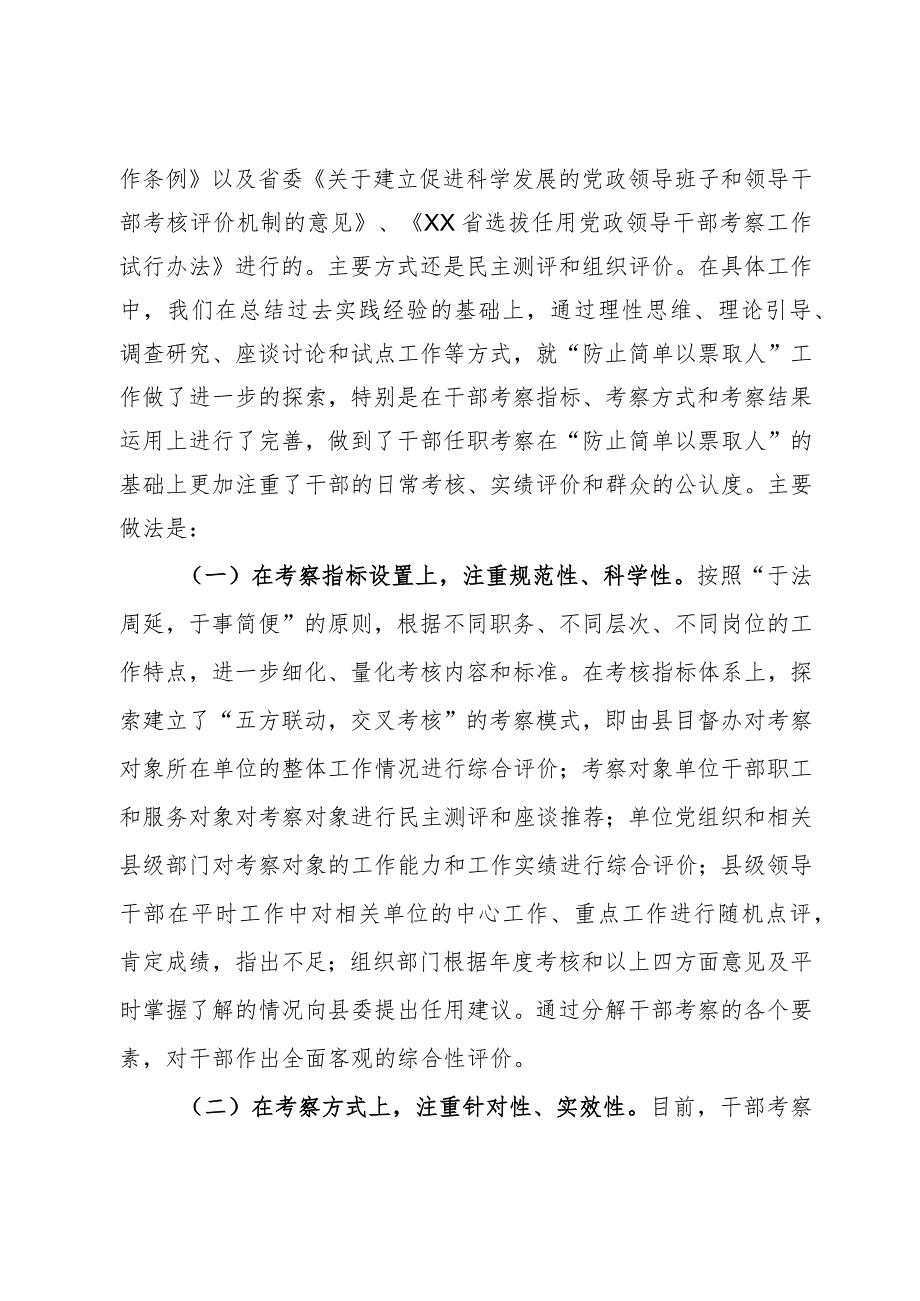 作条例》以及省委《关于建立促进科学发展的党政领导班子和领导干
部考核评价机制的意见》、《XX 省选拔任用党政领导干部考察工作
试行办法》进行的。主要方式还是民主测评和组织评价。在具体工作
中，我们在总结过去实践经验的基础上，通过理性思维、理论引导、
调查研究、座谈讨论和试点工作等方式，就“防止简单以票取人”工
作做了进一步的探索，特别是在干部考察指标、考察方式和考察结果
运用上进行了完善，做到了干部任职考察在“防止简单以票取人”的
基础上更加注重了干部的日常考核、实绩评价和群众的公认度。主要
做法是：
（一）在考察指标设置上，注重规范性、科学性。按照“于法
周延，于事简便”的原则，根据不同职务、不同层次、不同岗位的工
作特点，进一步细化、量化考核内容和标准。在考核指标体系上，探
索建立了“五方联动，交叉考核”的考察模式，即由县目督办对考察
对象所在单位的整体工作情况进行综合评价；考察对象单位干部职工
和服务对象对考察对象进行民主测评和座谈推荐；单位党组织和相关
县级部门对考察对象的工作能力和工作实绩进行综合评价；县级领导
干部在平时工作中对相关单位的中心工作、重点工作进行随机点评，
肯定成绩，指出不足；组织部门根据年度考核和以上四方面意见及平
时掌握了解的情况向县委提出任用建议。通过分解干部考察的各个要
素，对干部作出全面客观的综合性评价。
（二）在考察方式上，注重针对性、实效性。目前，干部考察